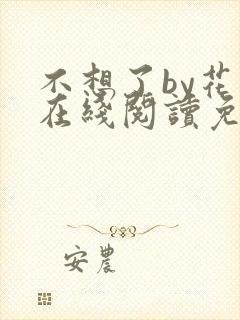 不想了by花
在綫閱讀免
安農